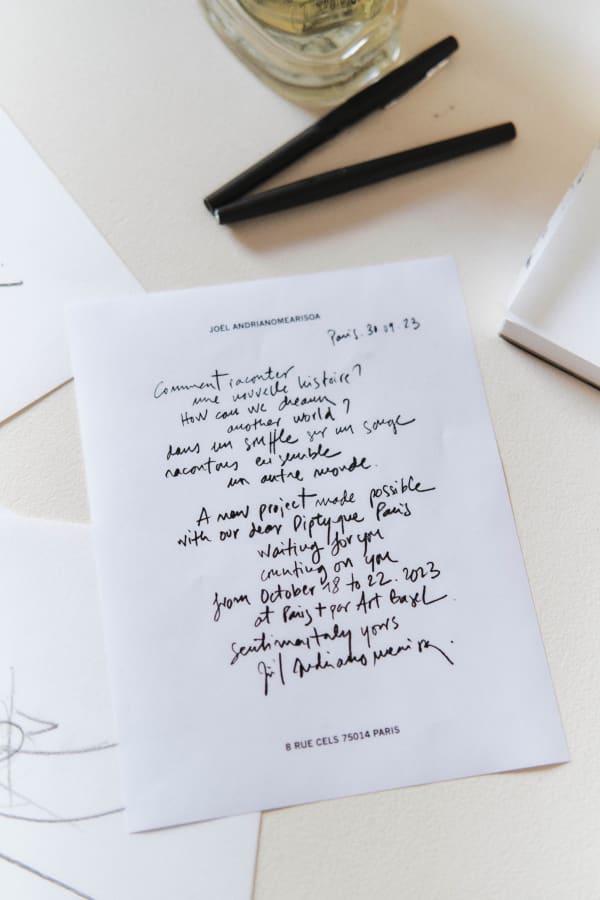 JOËL ANDRIANOMEARISOA
Paris. 30 09. 23
Comment raconter
une nouvelle histoire?
How can we dream
another world?
dans un souffle sur un songe
racontons ensemble
un autre monde.
A new project made possible
with our dear Diptyque Paris
waiting for you
counting on you
from October 18 to 22. 2023
at Paris + par Art Basel.
sentimentaly yours
Joël Andrianomearisoa.
8 RUE CELS 75014 PARIS